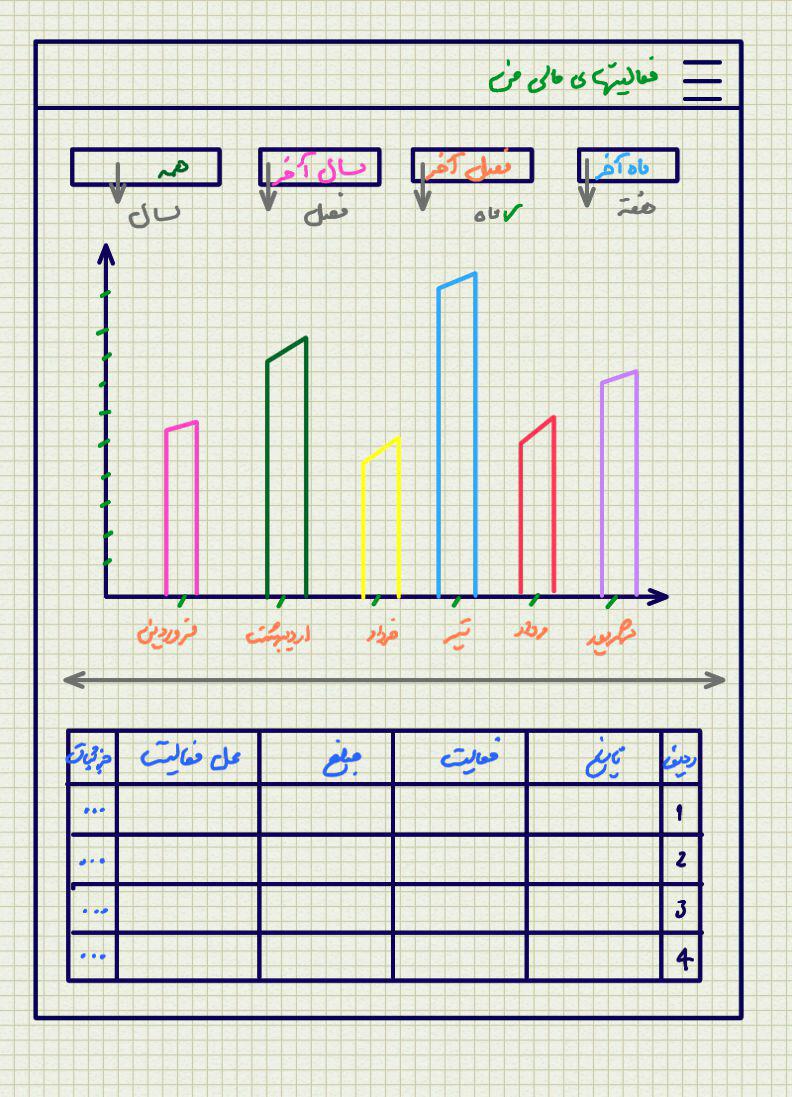 فعالیتهای مالی من
ماه آخر فصل آخر سال آخر همه
هفته ماه ✓ فصل سال
فروردین اردیبهشت خرداد تیر مرداد شهریور
ردیف تاریخ فعالیت مبلغ محل فعالیت جزئیات
1 ...
2 ...
3 ...
4 ...